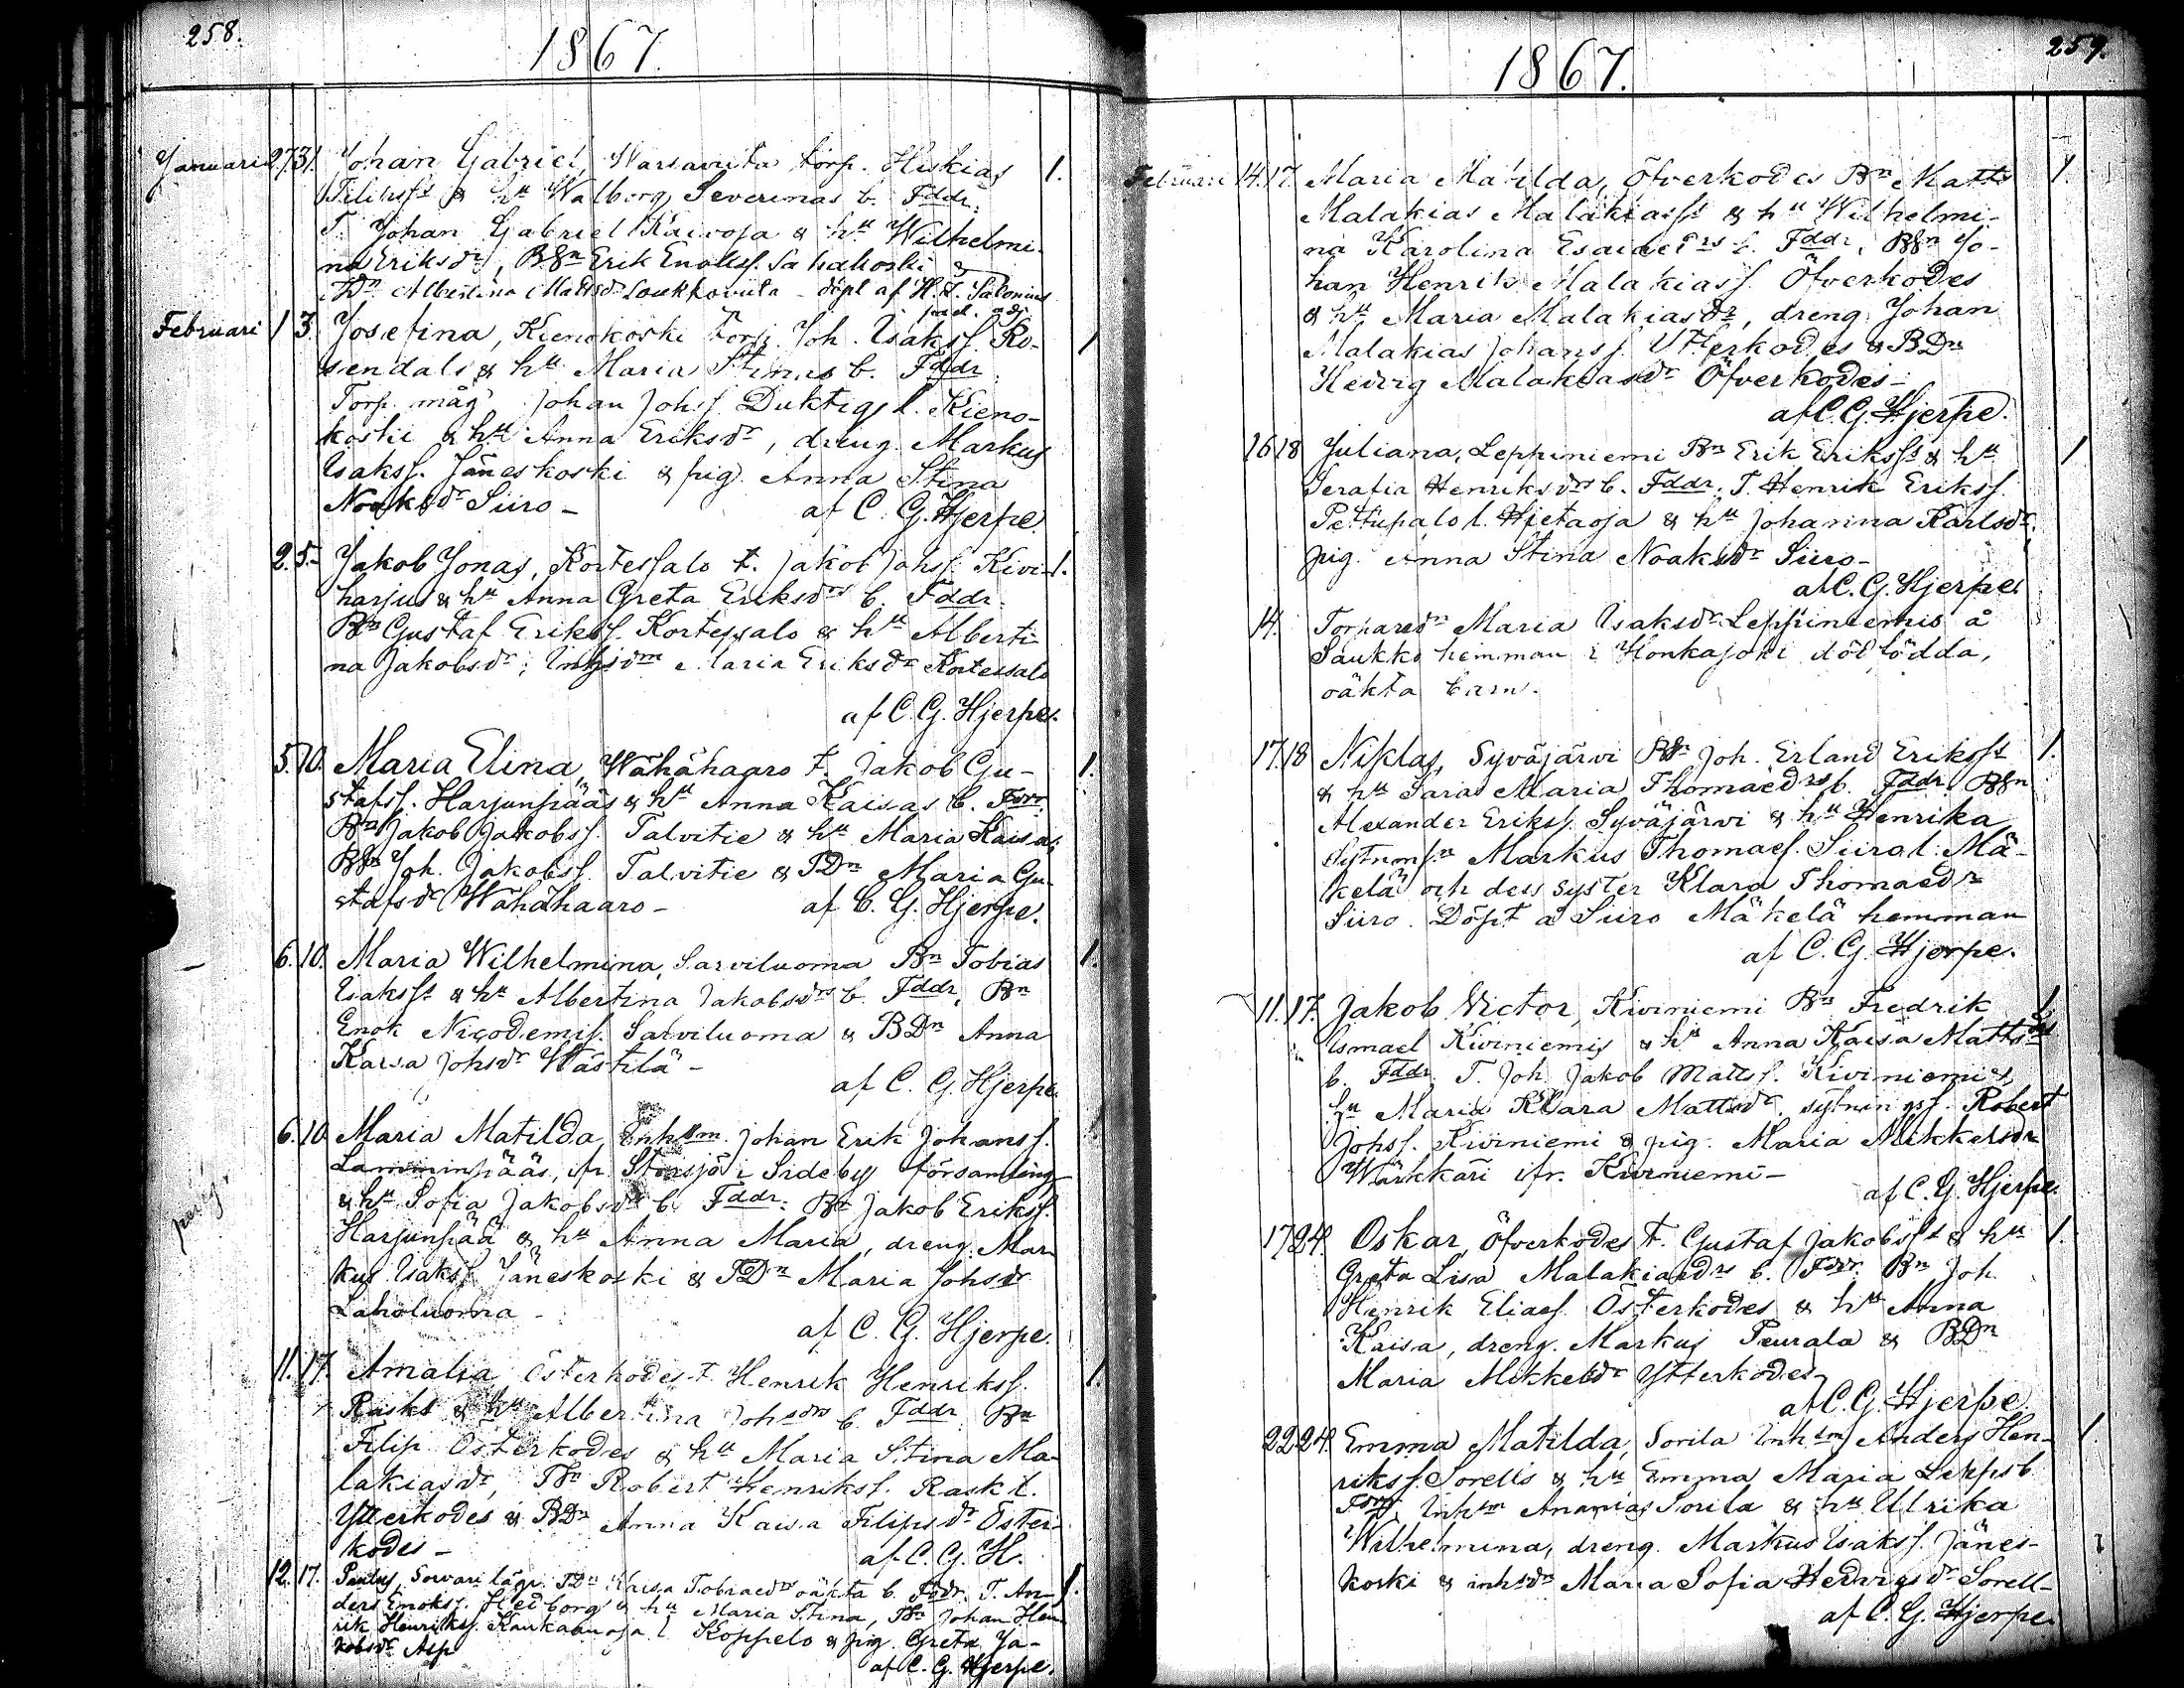 258.
1867.
Januari 27. 31. Johan Gabriel, torp. Hiskias 1.
& hu Walborg Severinas b. Fddr.
T. Johan Gabriel Kaivoja & hu Wilhelmi-
na Eriksdr, BSn Erik Enokss. Sahakoski &
Albertina Mattsdr Loukkovuta - döpt af H. J. Salonius
past. adj.
Februari 1 3. Josefina, Kienokoski torp. Joh. Isakss. Ro- 1
sendals & hu Maria Stinas b. Fddr.
Torp. måg Johan Johss. Duktig l. Kieno-
koski & hu Anna Eriksdr, dreng. Markus
Isakss. Jäneskoski & pig. Anna Stina
Noaksdr Siiro - af C. G. Hjerpe.
2. 5. Jakob Jonas, Kortessalo t. Jakob Johss. Kivi- 1.
harjus & hu Anna Greta Eriksdrs b. Fddr.
Bn Gustaf Erikss. Kortessalo & hu Alberti-
na Jakobsdr; Inhysdm Maria Eriksdr Kortessalo
af C. G. Hjerpe.
5. 10. Maria Elina, Wähähaaro t. Jakob Gu- 1.
stafss. Harjunpääs & hu Anna Kaisas b. Fddr.
Bn Jakob Jakobss. Talvitie & hu Maria Kaisa;
BSn Joh. Jakobss. Talvitie & TDn Maria Gu-
stafsdr Wähähaaro - af C. G. Hjerpe.
6. 10. Maria Wilhelmina, Sarviluoma Bn Tobias 1.
Isakss & hu Albertina Jakobsdrs b. Fddr. Bn
Enok Nicodemiss. Sarviluoma & BDn Anna
Kaisa Johsdr Wästilä -
af C. G. Hjerpe.
6. 10 Maria Matilda, Johan Erik Johanss. 1
Lamminpääs, fr. Storsjö i Sideby församling
& hu Sofia Jakobsdrs b. Fddr. Bn Jakob Erikss.
Harjunpää & hu Anna Maria, dreng. Mar-
kus Isakss. Jäneskoski & TDn Maria Johsdr
Laholuoma -
af C. G. Hjerpe.
11. 17. Amalia, Österkodes t. Henrik Henrikss. 1.
Rasks & hu Albertina Johsdrs b. Fddr. Bn
Filip Österkodes & hu Maria Stina Ma-
lakiasdr, TSn Robert Henrikss. Rask l.
Ytterkodes & BDn Anna Kaisa Filipsdr Öster-
kodes - af C. G. H.
12. 17. Paulus, Sorvari lägr. TDn Kaisa Tobiaedrs oäkta b. Fddr. T. An- 1.
ders Enokss. Hedborg & hu Maria Stina, TSn Johan Hen-
rik Henrikss. l. Koppelo & pig. Greta Ja-
kobsdr
af C. G. Hjerpe.
259.
1867.
Februari 14. 17. Maria Matilda, Öfverkodes Bn Matts 1
Malakias Malakiass & hu Wilhelmi-
na Karolina Esaiaedrs b. Fddr. BSn Jo-
han Henrik Malakiass. Öfverkodes
& hu Maria Malakiasdr, dreng. Johan
Malakias Johanss. Ytterkodes & BDn
Hedvig Malakiasdr Öfverkodes -
af C. G. Hjerpe.
16 18 Juliana, Leppiniemi Bn Erik Erikss & hu 1
Serafia Henriksdrs b. Fddr. T. Henrik Erikss.
Pettupalo l. Hietaoja & hu Johanna Karlsdr.
pig. Anna Stina Noaksdr Siiro -
af C. G. Hjerpe.
14. Torparedn Maria Isaksdr Leppiniemis å
Saukko hemman i Honkajoki dödfödda,
oäkta barn.
17. 18 Niklas, Syväjärvi BSn Joh. Erland Erikss 1.
& hu Sara Maria Thomaedrs b. Fddr. BSn
Alexander Erikss. Syväjärvi & hu Henrika
Markus Thomaes. Siiro l. Mä-
kelä och dess syster Klara Thomaedr
Siiro. Döpt å Siiro Mäkelä hemman
af C. G. Hjerpe.
11. 17. Jakob Victor, Kiviniemi Bn Fredrik 1
Ismael Kiviniemis & hu Anna Kaisa Mattsdrs
b. Fddr. T. Joh. Jakob Mattss. Kiviniemi &
hu Maria Klara Mattsdr, sytningss. Robert
Johss. Kiviniemi & pig. Maria Mikkelsdr
Wärkkäri fr. Kiviniemi -
af C. G. Hjerpe.
17 24. Oskar, Öfverkodes t. Gustaf Jakobss & hu 1.
Greta Lisa Malakiaedrs b. Fddr. Bn Joh.
Henrik Eliass. Österkodes & hu Anna
Kaisa, dreng. Markus Peurala & BDn
Maria Mikkelsdr Ytterkodes -
af C. G. Hjerpe.
22 24. Emma Matilda, Sorila Inhsm Anders Hen- 1
rikss. Sorells & hu Emma Maria Lepps b.
Fddr. Inhsm Ananias Sorila & hu Ulrika
Wilhelmina, dreng. Markus Isakss. Jänes-
koski & inhsdr Maria Sofia Hedvigsdr Sorell -
af C. G. Hjerpe.